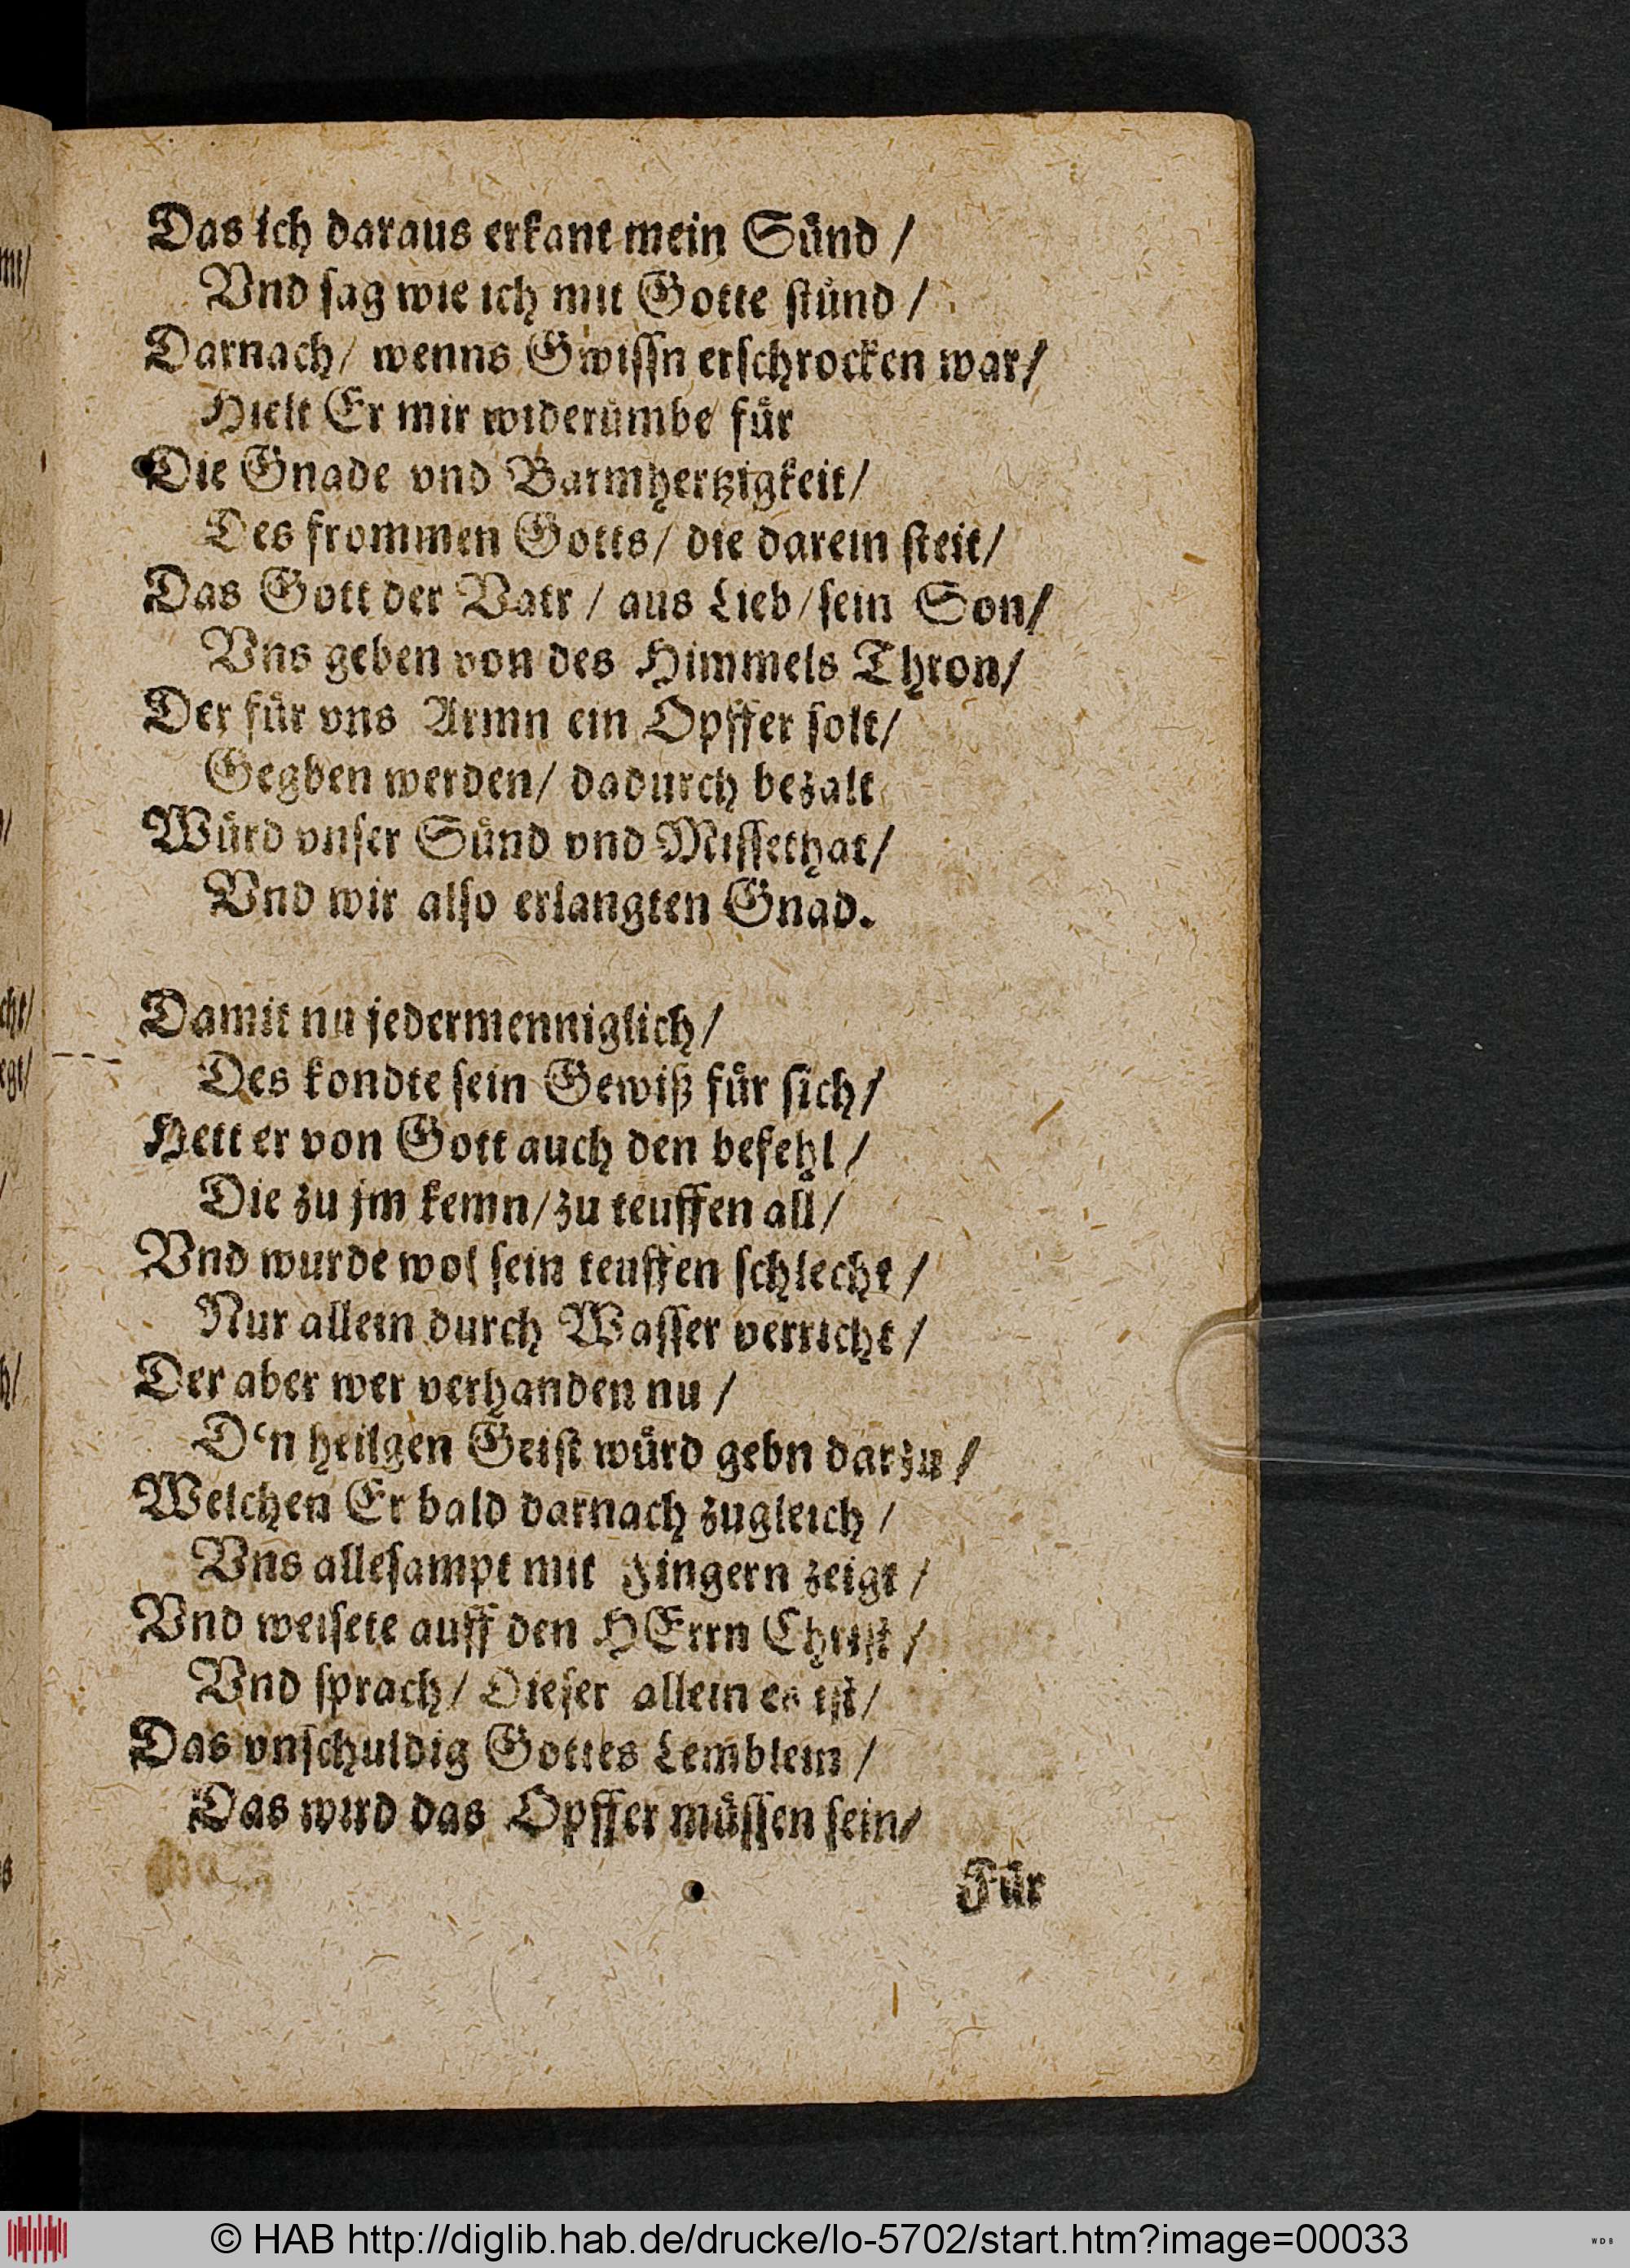 Das ich daraus erkant mein Sünd /
Vnd sag wie ich mit Gotte stünd /
Darnach / wenns Gwissn erschrocken war /
Hielt Er mir widerümbe für
Die Gnade vnd Barmhertzigkeit /
Des frommen Gotts / die darein steit /
Das Gott der Vatr / aus Lieb / sein Son /
Vns geben von des Himmels Thron /
Der für vns Armn ein Opffer solt /
Gegben werden / dadurch bezalt
Würd vnser Sünd vnd Missethat /
Vnd wir also erlangten Gnad.
Damit nu jedermenniglich /
Des kondte sein Gewiß für sich /
Hett er von Gott auch den befehl /
Die zu jm kemn / zu teuffen all /
Vnd wurde wol sein teuffen schlecht /
Nur allein durch Wasser verricht /
Der aber wer verhanden nu /
D'n heilgen Geist würd gebn darzu /
Welchen Er bald darnach zugleich /
Vns allesampt mit Fingern zeigt /
Vnd weisete auff den HErrn Christ /
Vnd sprach / Dieser allein es ist /
Das vnschuldig Gottes Lemblein /
Das wird das Opffer müssen sein /
Für
© HAB http://diglib.hab.de/drucke/lo-5702/start.htm?image=00033
WDB